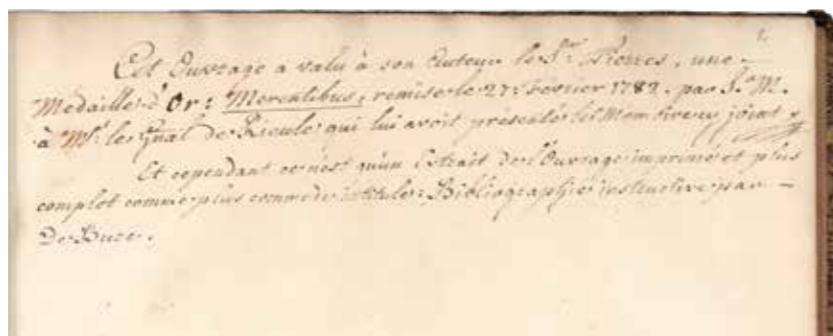 Cet Ouvrage a valu à son Auteur le Sr. Pierres, une
Medaille d'Or: Merentibus, remise le 27 Février 1782. par S. M.
à Mr. le Gnal de qui lui avoit présenté les Mem cy joint
Et cependant ce n'est qu'un Extrait de l'Ouvrage imprimé et plus
complet comme plus commode intitulé: Bibliographie instructive par —
De Bure.